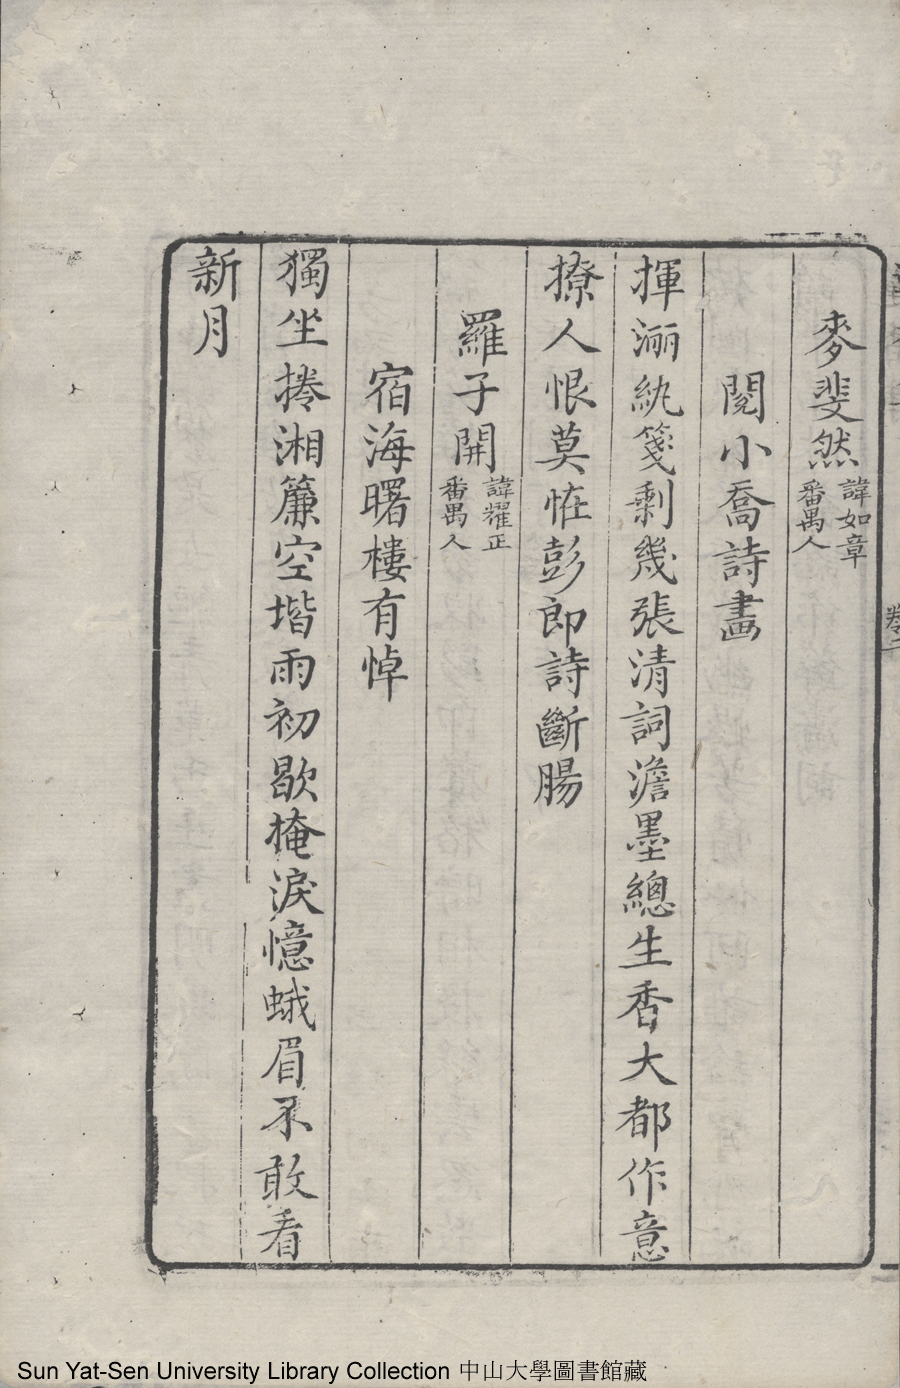 麥斐然 諱如章 番禺人
閱小喬詩畫
揮洒紈箋剩幾張清詞澹墨總生香大都作意
撩人恨莫恠彭郎詩斷腸
羅子開 諱耀正 番禺人
宿海曙樓有悼
獨坐捲湘簾空堦雨初歇掩淚憶蛾眉不敢看
新月
Sun Yat-Sen University Library Collection 中山大學圖書館藏